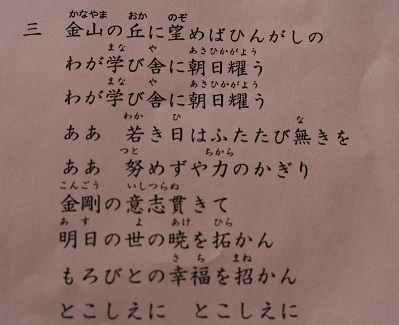 三 金山の丘に望めばひんがしの
わが学び舎に朝日耀う
わが学び舎に朝日耀う
ああ 若き日はふたたび無きを
ああ 努めずや力のかぎり
金剛の意志貫きて
明日の世の暁を拓かん
もろびとの幸福を招かん
とこしえに とこしえに